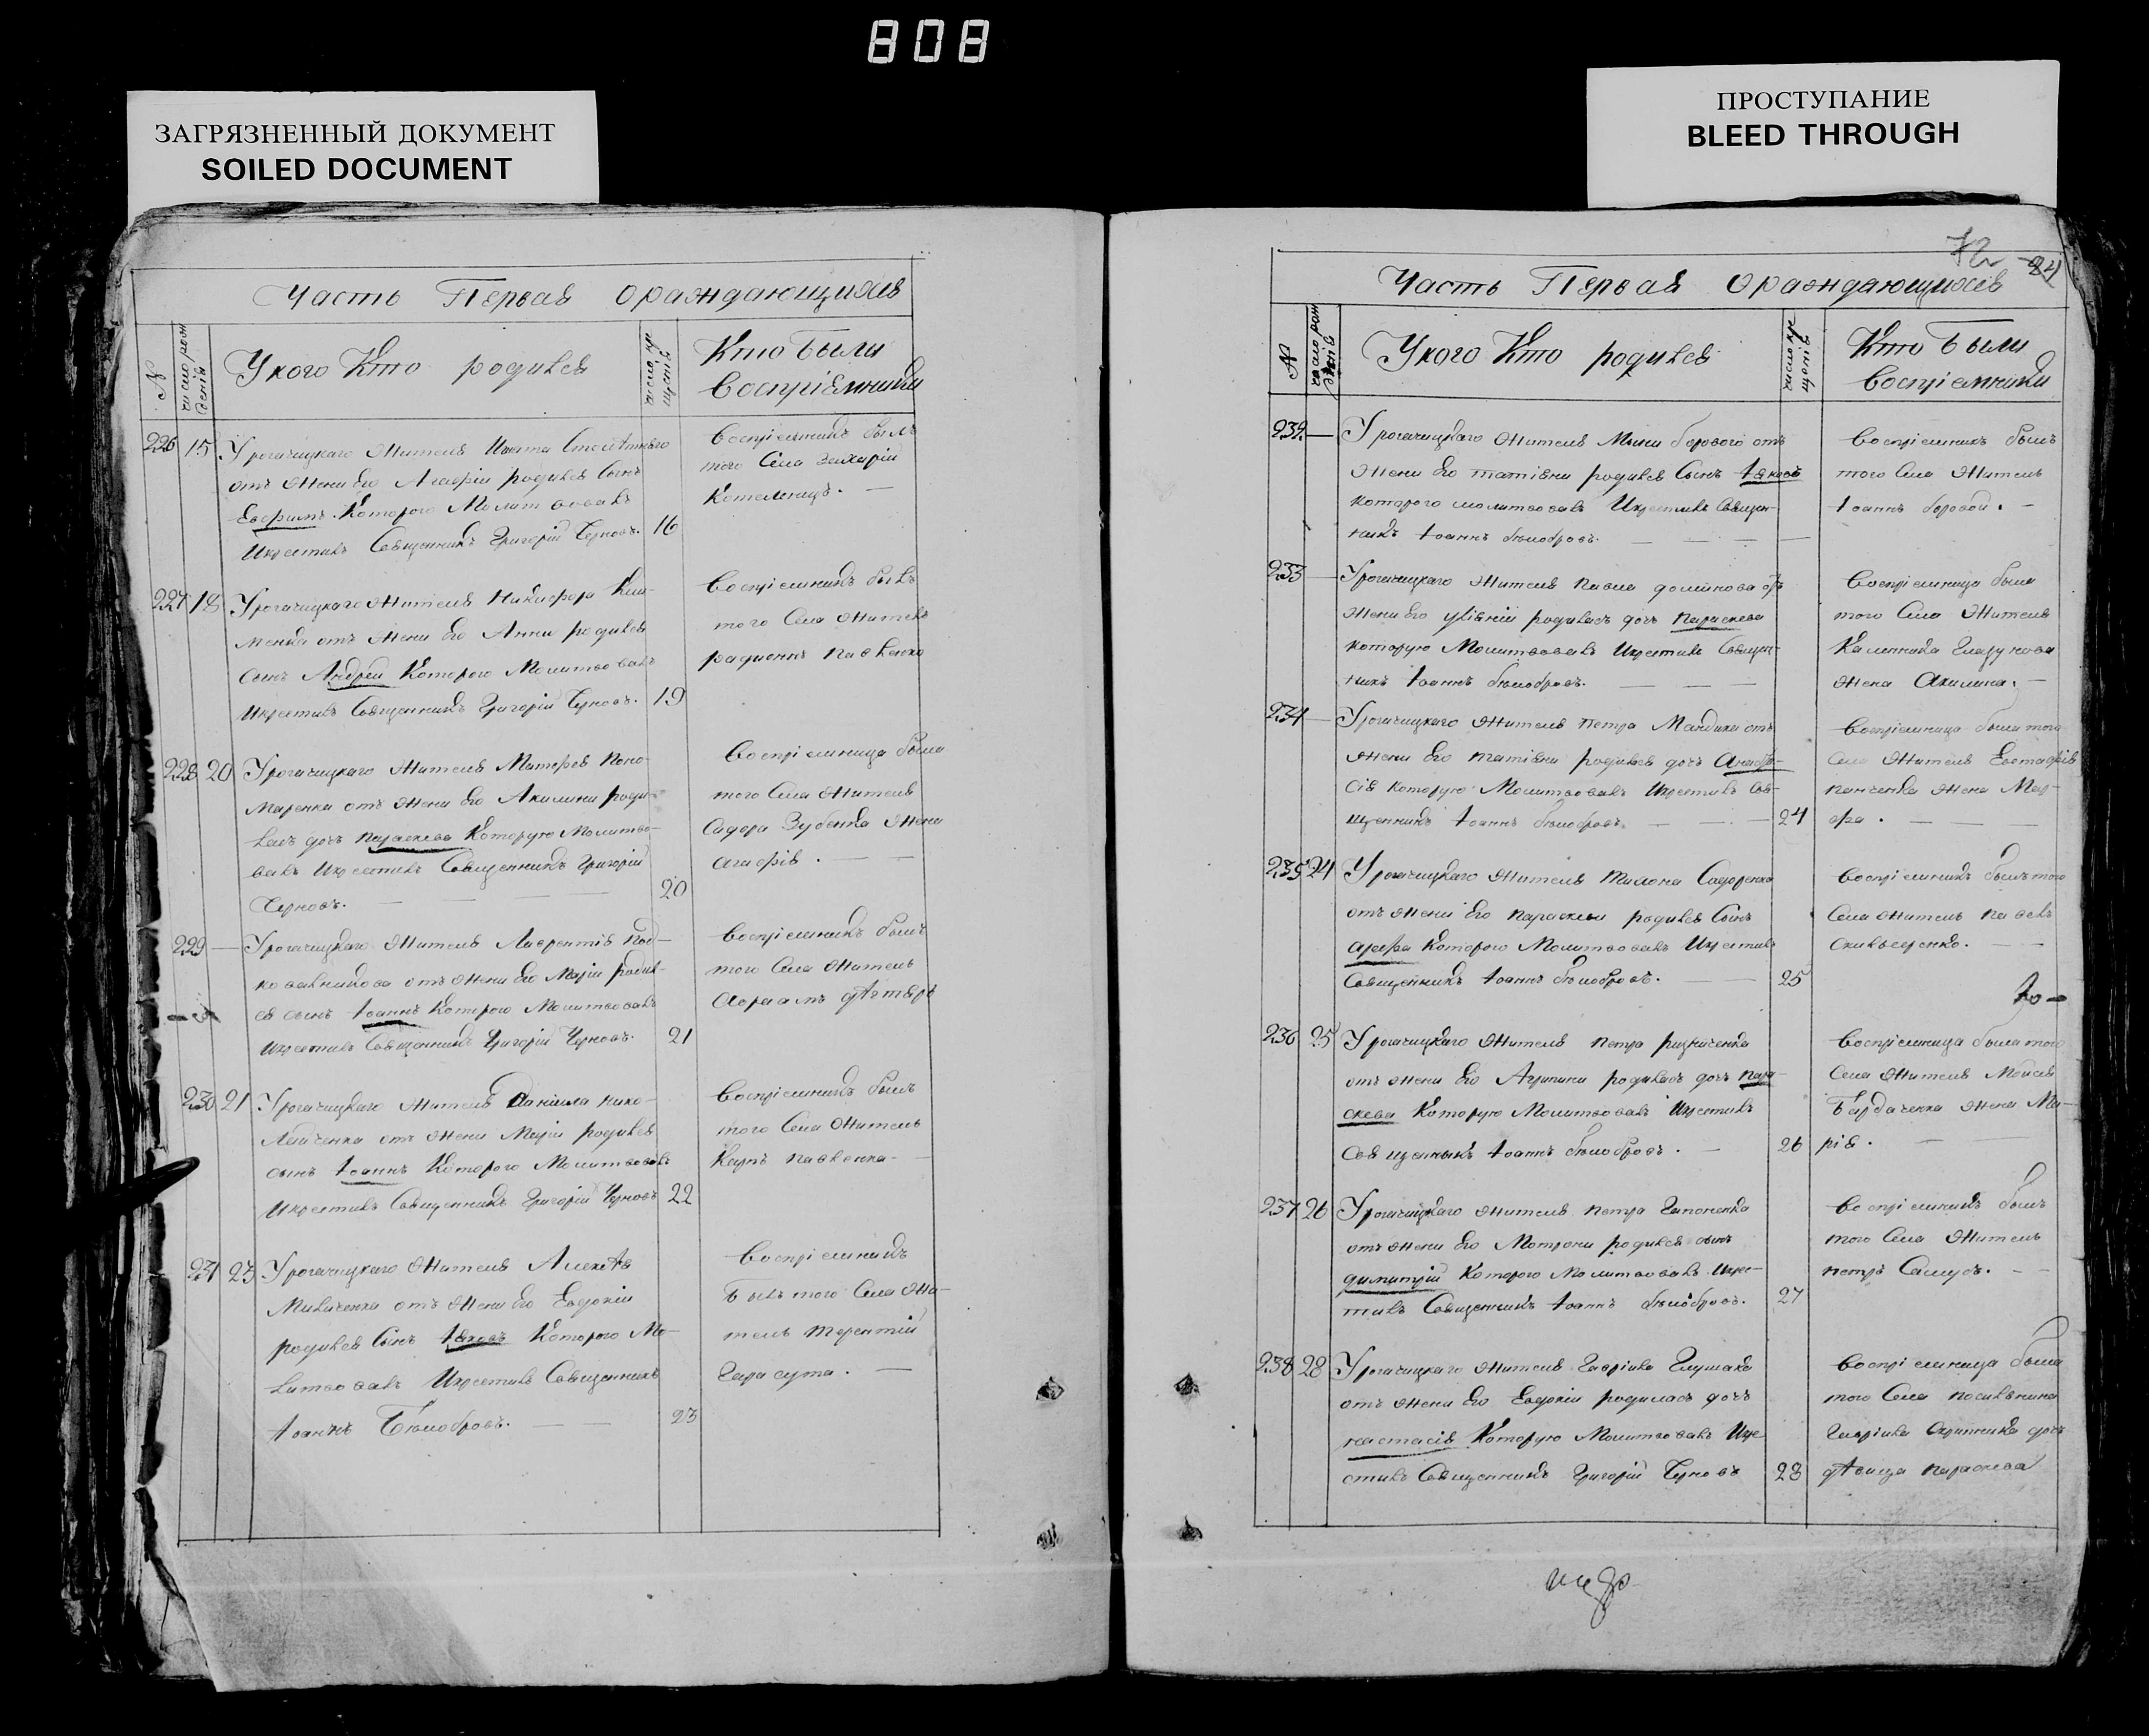 808
ЗАГРЯЗНЕННЫЙ ДОКУМЕНТ
SOILED DOCUMENT
ПРОСТУПАНИЕ
BLEED THROUGH
Часть Первая оражндающихся
N
число рож
денія
Укого Кто родился
число кре
щенія
Кто были
воспріемники
226 15 Урогачицкаго жителя Никиты
отъ жени Его Агафіи родился Сынъ
Евфимъ. Которого Молитвовалъ
Икрестилъ Священникъ Григорій Черновъ. 16
воспріемникъ былъ
того Села Захарій
Котелницъ. —
227 18 Урогачицкаго жителя Никифора Кли-
менка отъ жени Его Анни родился
сынъ Андрей Которого Молитвовалъ
Икрестилъ Священникъ Григорій Черновъ. 19
воспріемникъ былъ
того Села житель
радионъ павленко
228 20 Урогачицкаго жителя Матфея Поно-
маренка отъ жени Его Акилини роди-
лась дочъ параскева Которую Молитво-
валъ Икрестилъ Священникъ Григорій
Черновъ. — — — 20
воспріемница была
того Села жителя
Сидора Зубенка жена
агафія. — —
229 — Урогачицкаго жителя Лаврентія Под-
ковалникова отъ жени Его Маріи родил-
ся сынъ Іоаннъ Которого Молитвовалъ
Икрестилъ Священникъ Григорій Черновъ. 21
воспріемникъ былъ
того Села житель
авраамъ дѣгтярь
230 21 Урогачицкаго жителя Даніила нико-
лайченка отъ жени Маріи родился
сынъ Іоаннъ Которого Молитвовалъ
Икрестилъ Священникъ Григорій Черновъ 22
воспріемникъ былъ
того Села житель
Карпъ павленка —
231 23 Урогачицкаго жителя Алексѣя
отъ жени Его Евдокіи
родился Сынъ Іаковъ Которого Мо-
литвовалъ Икрестилъ Священникъ
Іоаннъ Бѣлобровъ. — — 23
воспріемникъ
Былъ того Села жи-
тель терентій
Гарасута. —
72 84
Часть Первая оражндающихся
N
число рож
денія
Укого Кто родился
число кре
щенія
Кто Были
воспріемники
232 — Урогачицкаго жителя Мини борового отъ
жени Его татіяни родился Сынъ Іаковъ
которого молитвовалъ Икрестилъ Священ-
никъ Іоаннъ бѣлобровъ. — — — —
воспріемникъ былъ
того Села житель
Іоаннъ боровой. —
233 — Урогачицкаго жителя павла отъ
жени Его уліяніи родилась дочъ параскева
которую Молитвовалъ Икрестилъ Священ-
никъ Іоаннъ бѣлобровъ. — — —
воспріемница была
того Села жителя
Калинника Глазунова
жена Акилина. —
234 — Урогачицкаго жителя петра Мандика отъ
жени Его татіяни родилась дочъ Анаста-
сія которую Молитвовалъ Икрестилъ Свя-
щенникъ Іоаннъ бѣлобровъ. — — — 24
воспріемница была того
Села жителя Евстафія
панченка жена Мар-
фа. — — —
235 24 Урогачицкаго жителя Сидоренка
отъ жени Его параскеви родился Сынъ
арефа Которого Молитвовалъ Икрестилъ
Священникъ Іоаннъ бѣлобровъ. — 25
воспріемникъ былъ того
Села житель павелъ
236 25 Урогачицкаго жителя петра ризниченка
отъ жени Его Агрипини родилась дочъ пара-
скева Которую Молитвовалъ Икрестилъ
Священникъ Іоаннъ бѣлобровъ. — 26
воспріемница была того
Села жителя Мойсея
Бардаченка жена Ма-
рія. — —
237 26 Урогачицкаго жителя петра Гапоненка
отъ жени Его Мотрони родился сынъ
димитрій Которого Молитвовалъ Икрес-
тилъ Священникъ Іоаннъ бѣлобровъ. 27
воспріемникъ былъ
того Села житель
петръ Самусь. — —
238 28 Урогачицкаго жителя Гавріила Глушака
отъ жени Его Евдокіи родилась дочъ
настасія Которую Молитвовалъ Икре
стилъ Священникъ Григорій Черновъ 28
воспріемница была
того Села поселянина
Гавріила Скрипника дочъ
дѣвица параскева